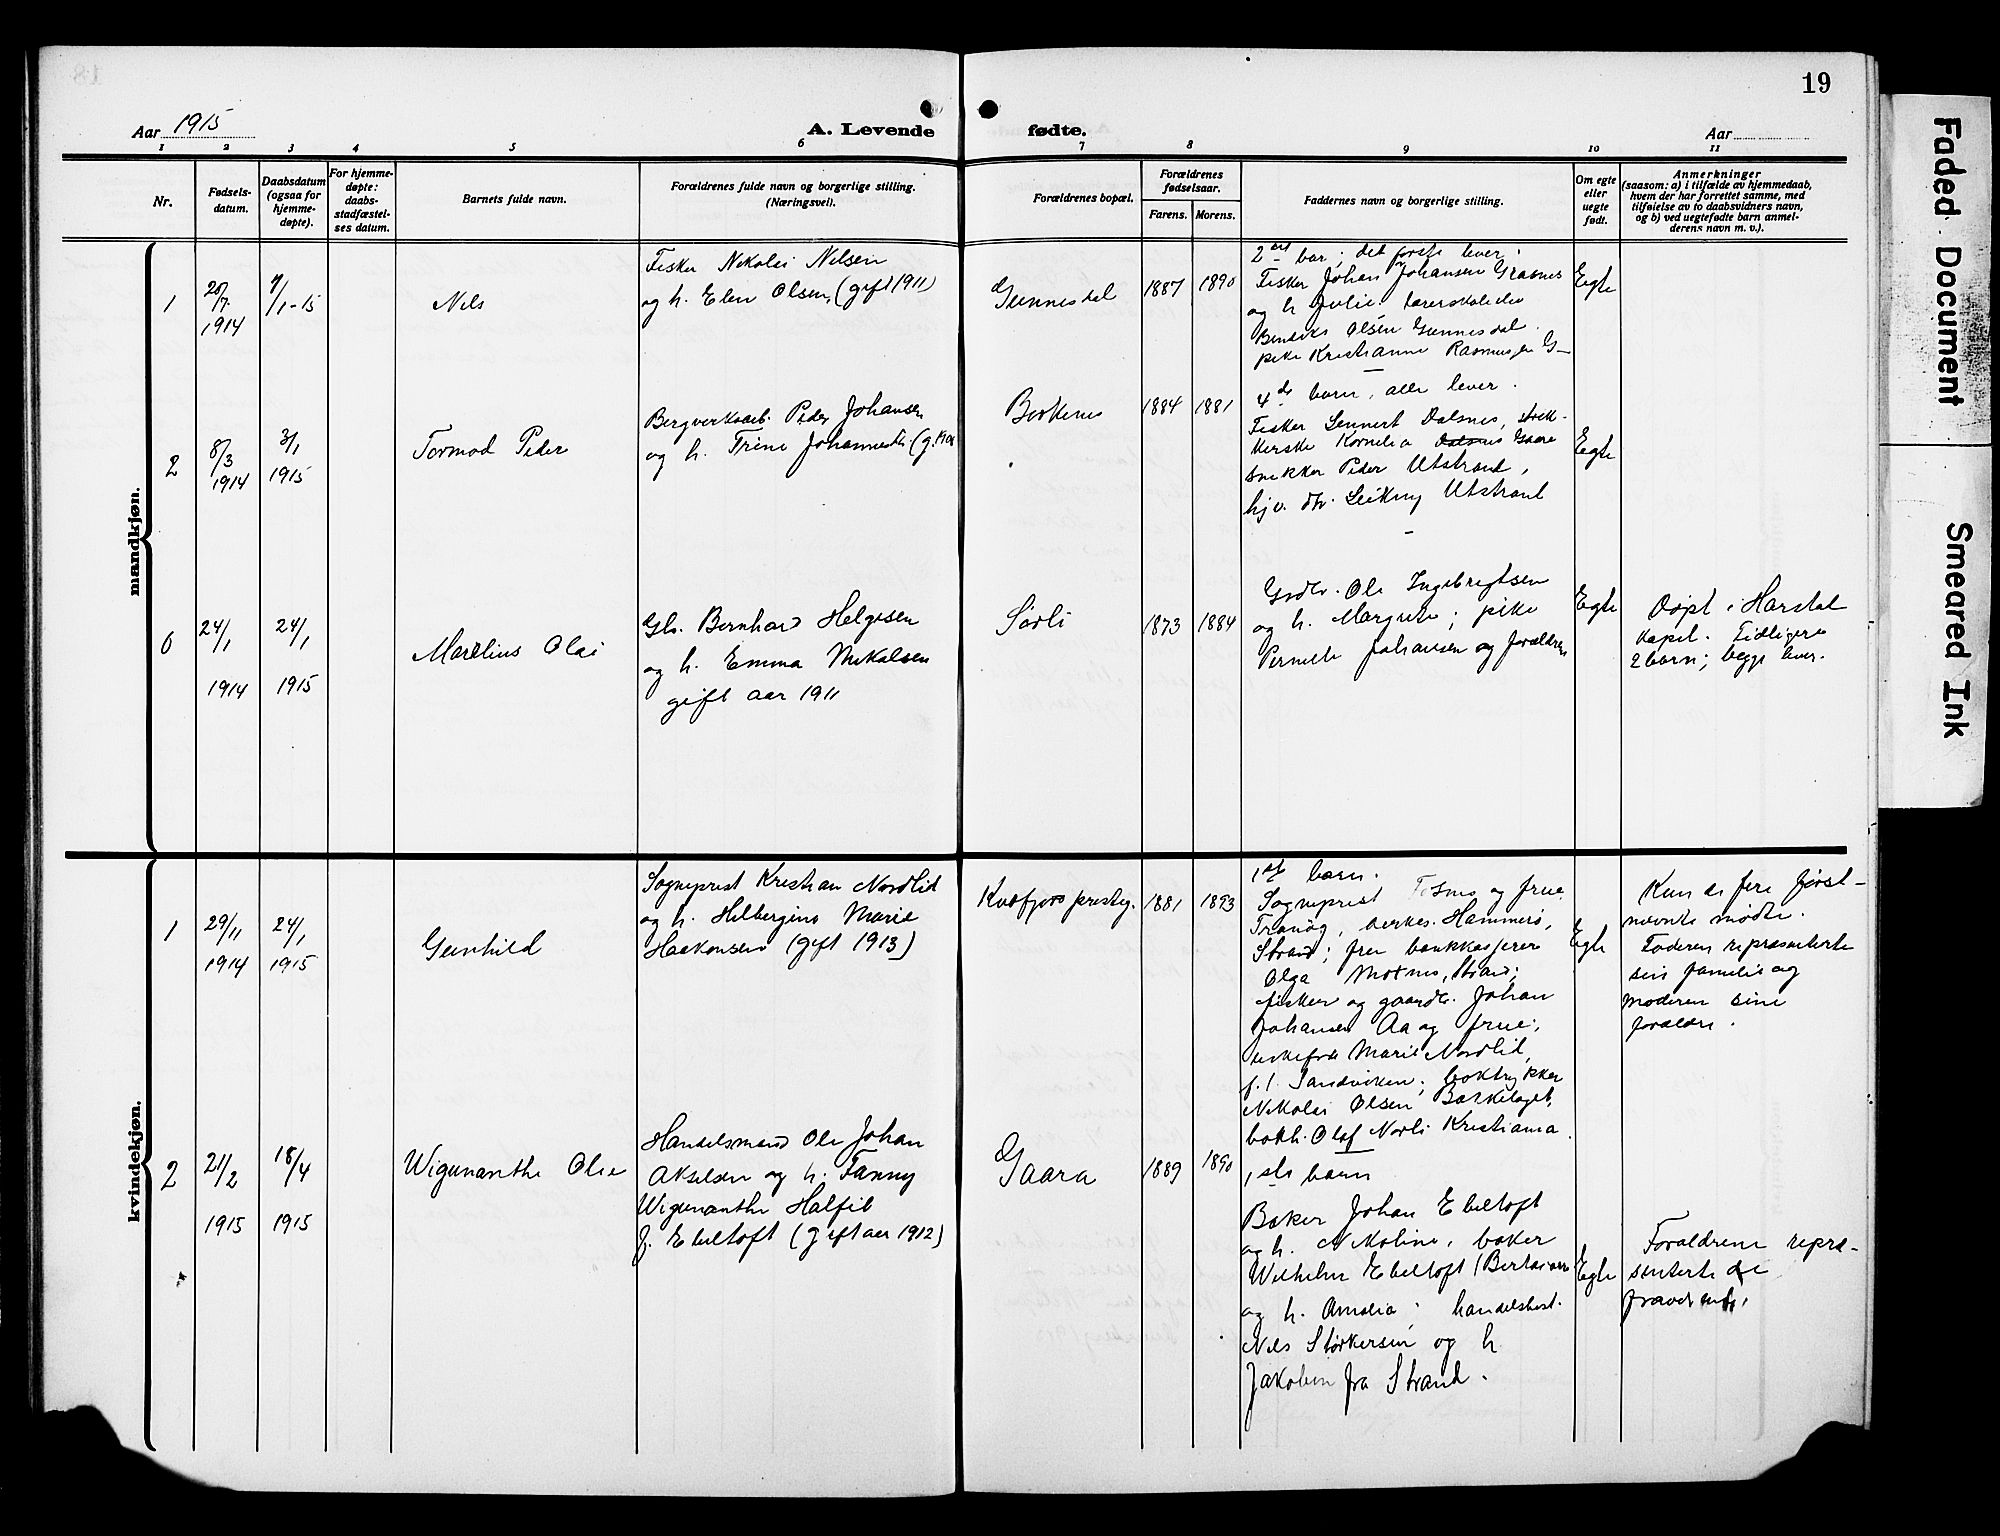 19
Aar 1915
A. Levende fødte.
Aar
1 2 3 4 5 6 7 8 9 10 11
Nr.
Fødsels-
datum.
Daabsdatum
(ogsaa for
hjemme-
døpte).
For hjemme-
døpte:
daabs-
stadfæstel-
ses datum.
Barnets fulde navn.
Forældrenes fulde navn og borgerlige stilling.
(Næringsvei.)
Forældrenes bopæl.
Forældrenes
fødselsaar.
Farens. Morens.
Faddernes navn og borgerlige stilling.
Om egte
eller
uegte
født.
Anmerkninger
(saasom: a) i tilfælde av hjemmedaab,
hvem der har forrettet samme, med
tilføielse av to daabsvidners navn,
og b) ved uegtefødte barn anmel-
derens navn m. v.).
mandkjøn.
1
1914
Nils
Fisker Nikolai Nilsen
og h. Elen Olsen, (gift 1911)
Gunnesdal
1887
1890
det første lever;
Fisker Johan Johansen Grasnes
og h Julie
Olsen Gunnesdal
pike Kristianne Rasmussen G—
Egte
2
8/3
1914
3/1
1915
Tormod Peder
Peder Johansen
og h. Trine
Borkenes
1884
1881
4de barn, alle lever.
Fisker Lennert Dalsnes,
Kornelia Dalsnes Gaare
snekker Peder Utstrand,
Utstrand
Egte
0
24/1
1914
24/1
1915
Olai
Gb. Bernhard Helgesen
og h. Emma Mikalsen
gift aar 1911
Sørli
1873
1884
Ole Ingebrigtsen
og h. Margrete; pike
Pernelle Johansen og forældrene
Egte
Døpt i Harstad
kapel. Tidligere
2 barn; begge lever.
kvindekjøn.
1
29/11
1914
24/1
1915
Gunhild
Sogneprest Kristian Nordlid
og h. Helbergine Marie
Haakonsen (gift 1913)
Kvæfjord prestg.
1881
1893
1ste barn.
Sogneprest og frue,
Tranøy, Hammerø,
Strand; fru bankkasserer
Olga Strand;
fisker og gaardb. Johan
Johansen Aa og frue;
Marie Nordlid,
Sandviken; boktrykker
Nikolai Olsen Bækkelaget,
bokh. Olaf Norli Kristiania.
Egte
Kun de fire først-
nevnte mødte.
Faderen repræsenterte
sin familie og
moderen sine
forældre.
2
21/2
1915
18/4
1915
Wigunanthe Olie
Handelsmand Ole Johan
Akselsen og h. Fanny
Wigunanthe
f. Ebeltoft (gift aar 1912)
Gaara
1889
1890
1ste barn
Baker Johan Ebeltoft
og h. Nikoline, baker
Wilhelm Ebeltoft
og h. Amalia; handelsbest.
Nils Størkersen og h
Jakobine fra Strand.
Egte
Forældrene repræ-
senterte de
fraværende.
Faded Document
Smeared Ink